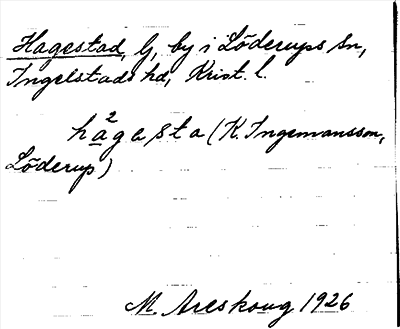 Hagestad, G, by i Löderups sn,
Ingelstads hd, Krist. l.
hà²gesta (K. Ingemansson,
Löderup)
M. Areskoug 1926